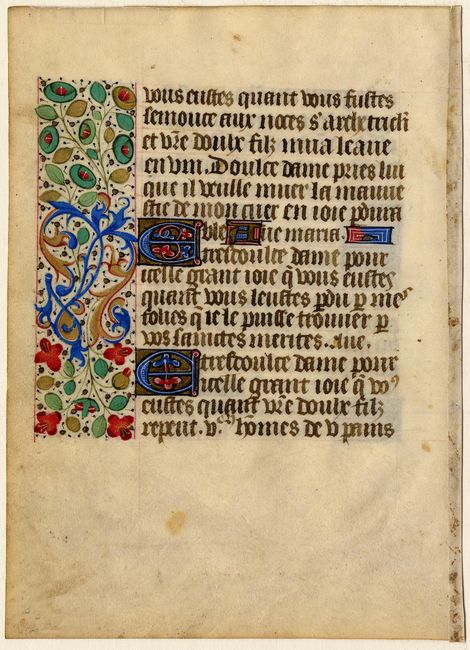 vous eustes quant vous fustes
semonce aux noces s'
et vr̃e doulx filz mua leaue
en vin. Doulce dame pries lui
que il veulle muer la mauue
stie de mon cuer en ioie p̱dura
ble. Aue maria
E tresdoulce dame pour
icelle grant ioie q̃ vous eustes
quant vous leustes p̱du p̱ mes
folies q̃ ie le puisse trouuer p̱
vos sainctes merites. Aue.
E tresdoulce dame pour
icelle grant ioie q̃ voꝰ
eustes quant vr̃e doulx filz
reput. v. homes de v pains